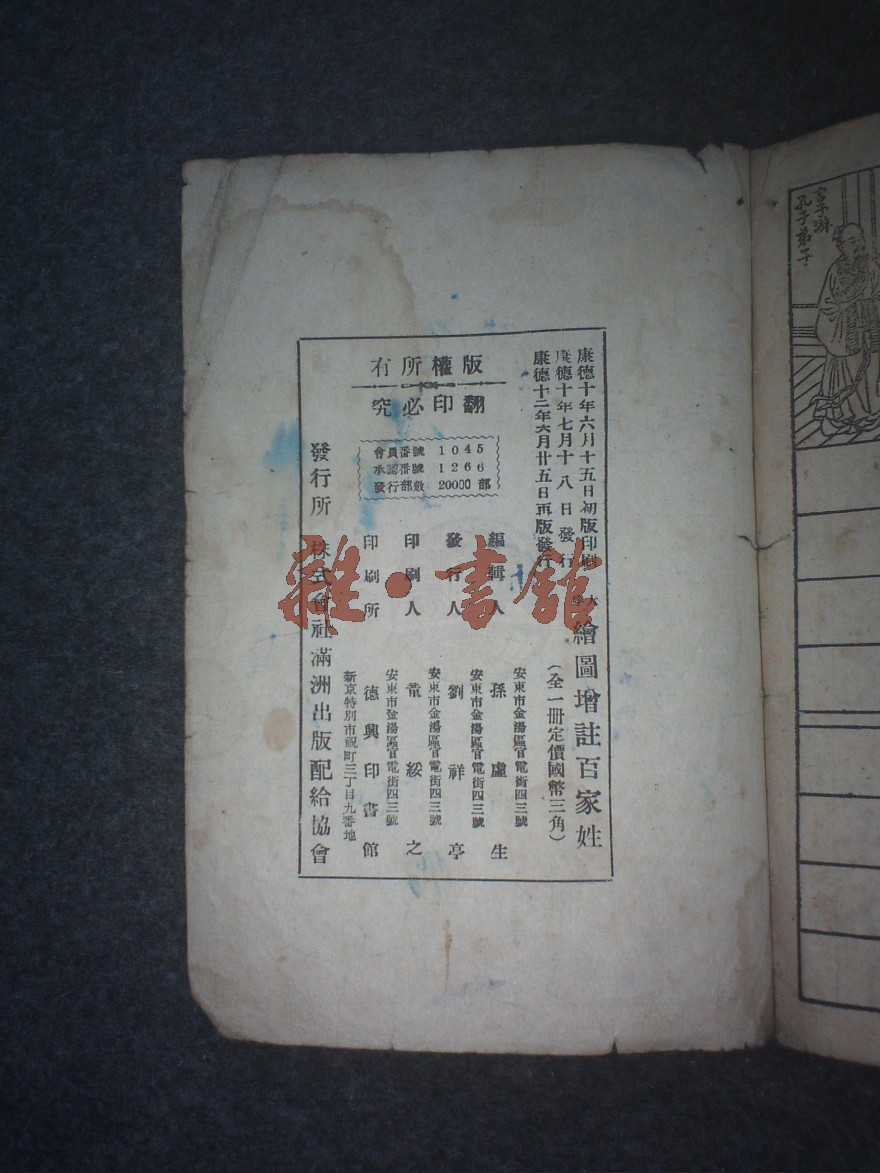 康德十年六月十五日初版印刷
康德十年七月十八日發行
康德十二年六月廿五日再版發行
版權所有
翻印必究
會員番號 1045
承認番號 1266
發行部數 20000 部
繪圖增註百家姓
(全一冊定價國幣三角)
安東市金湯區官電街四三號
編輯人 孫虛生
安東市金湯區官電街四三號
發行人 劉祥亭
安東市金湯區官電街四三號
印刷人 童綏之
安東市金湯區官電街四三號
印刷所 德興印書館
新京特別市祝町三丁目九番地
發行所 株式會社滿洲出版配給協會
雜·書館
孔子弟子